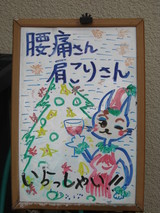 腰痛さん
肩こりさん
いらっしゃい!!